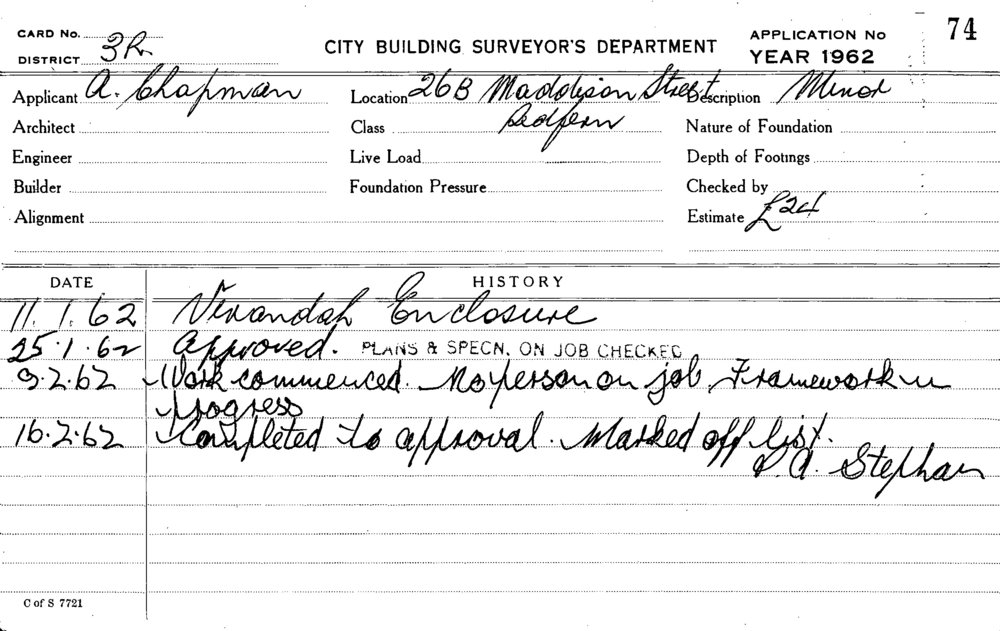 CARD No.
DISTRICT 3R
CITY BUILDING SURVEYOR'S DEPARTMENT
APPLICATION No 74
YEAR 1962
Applicant A. Chapman Location 26B Maddison Street Description Minor
Architect Class Redfern Nature of Foundation
Engineer Live Load Depth of Footings
Builder Foundation Pressure Checked by
Alignment Estimate £24
DATE HISTORY
11.1.62 Verandah Enclosure
25.1.62 Approved. PLANS & SPECN. ON JOB CHECKED
9.2.62 Work commenced. No person on job. Framework in
progress
16.2.62 Completed to approval. Marked off list.
Stephan
C of S 7721